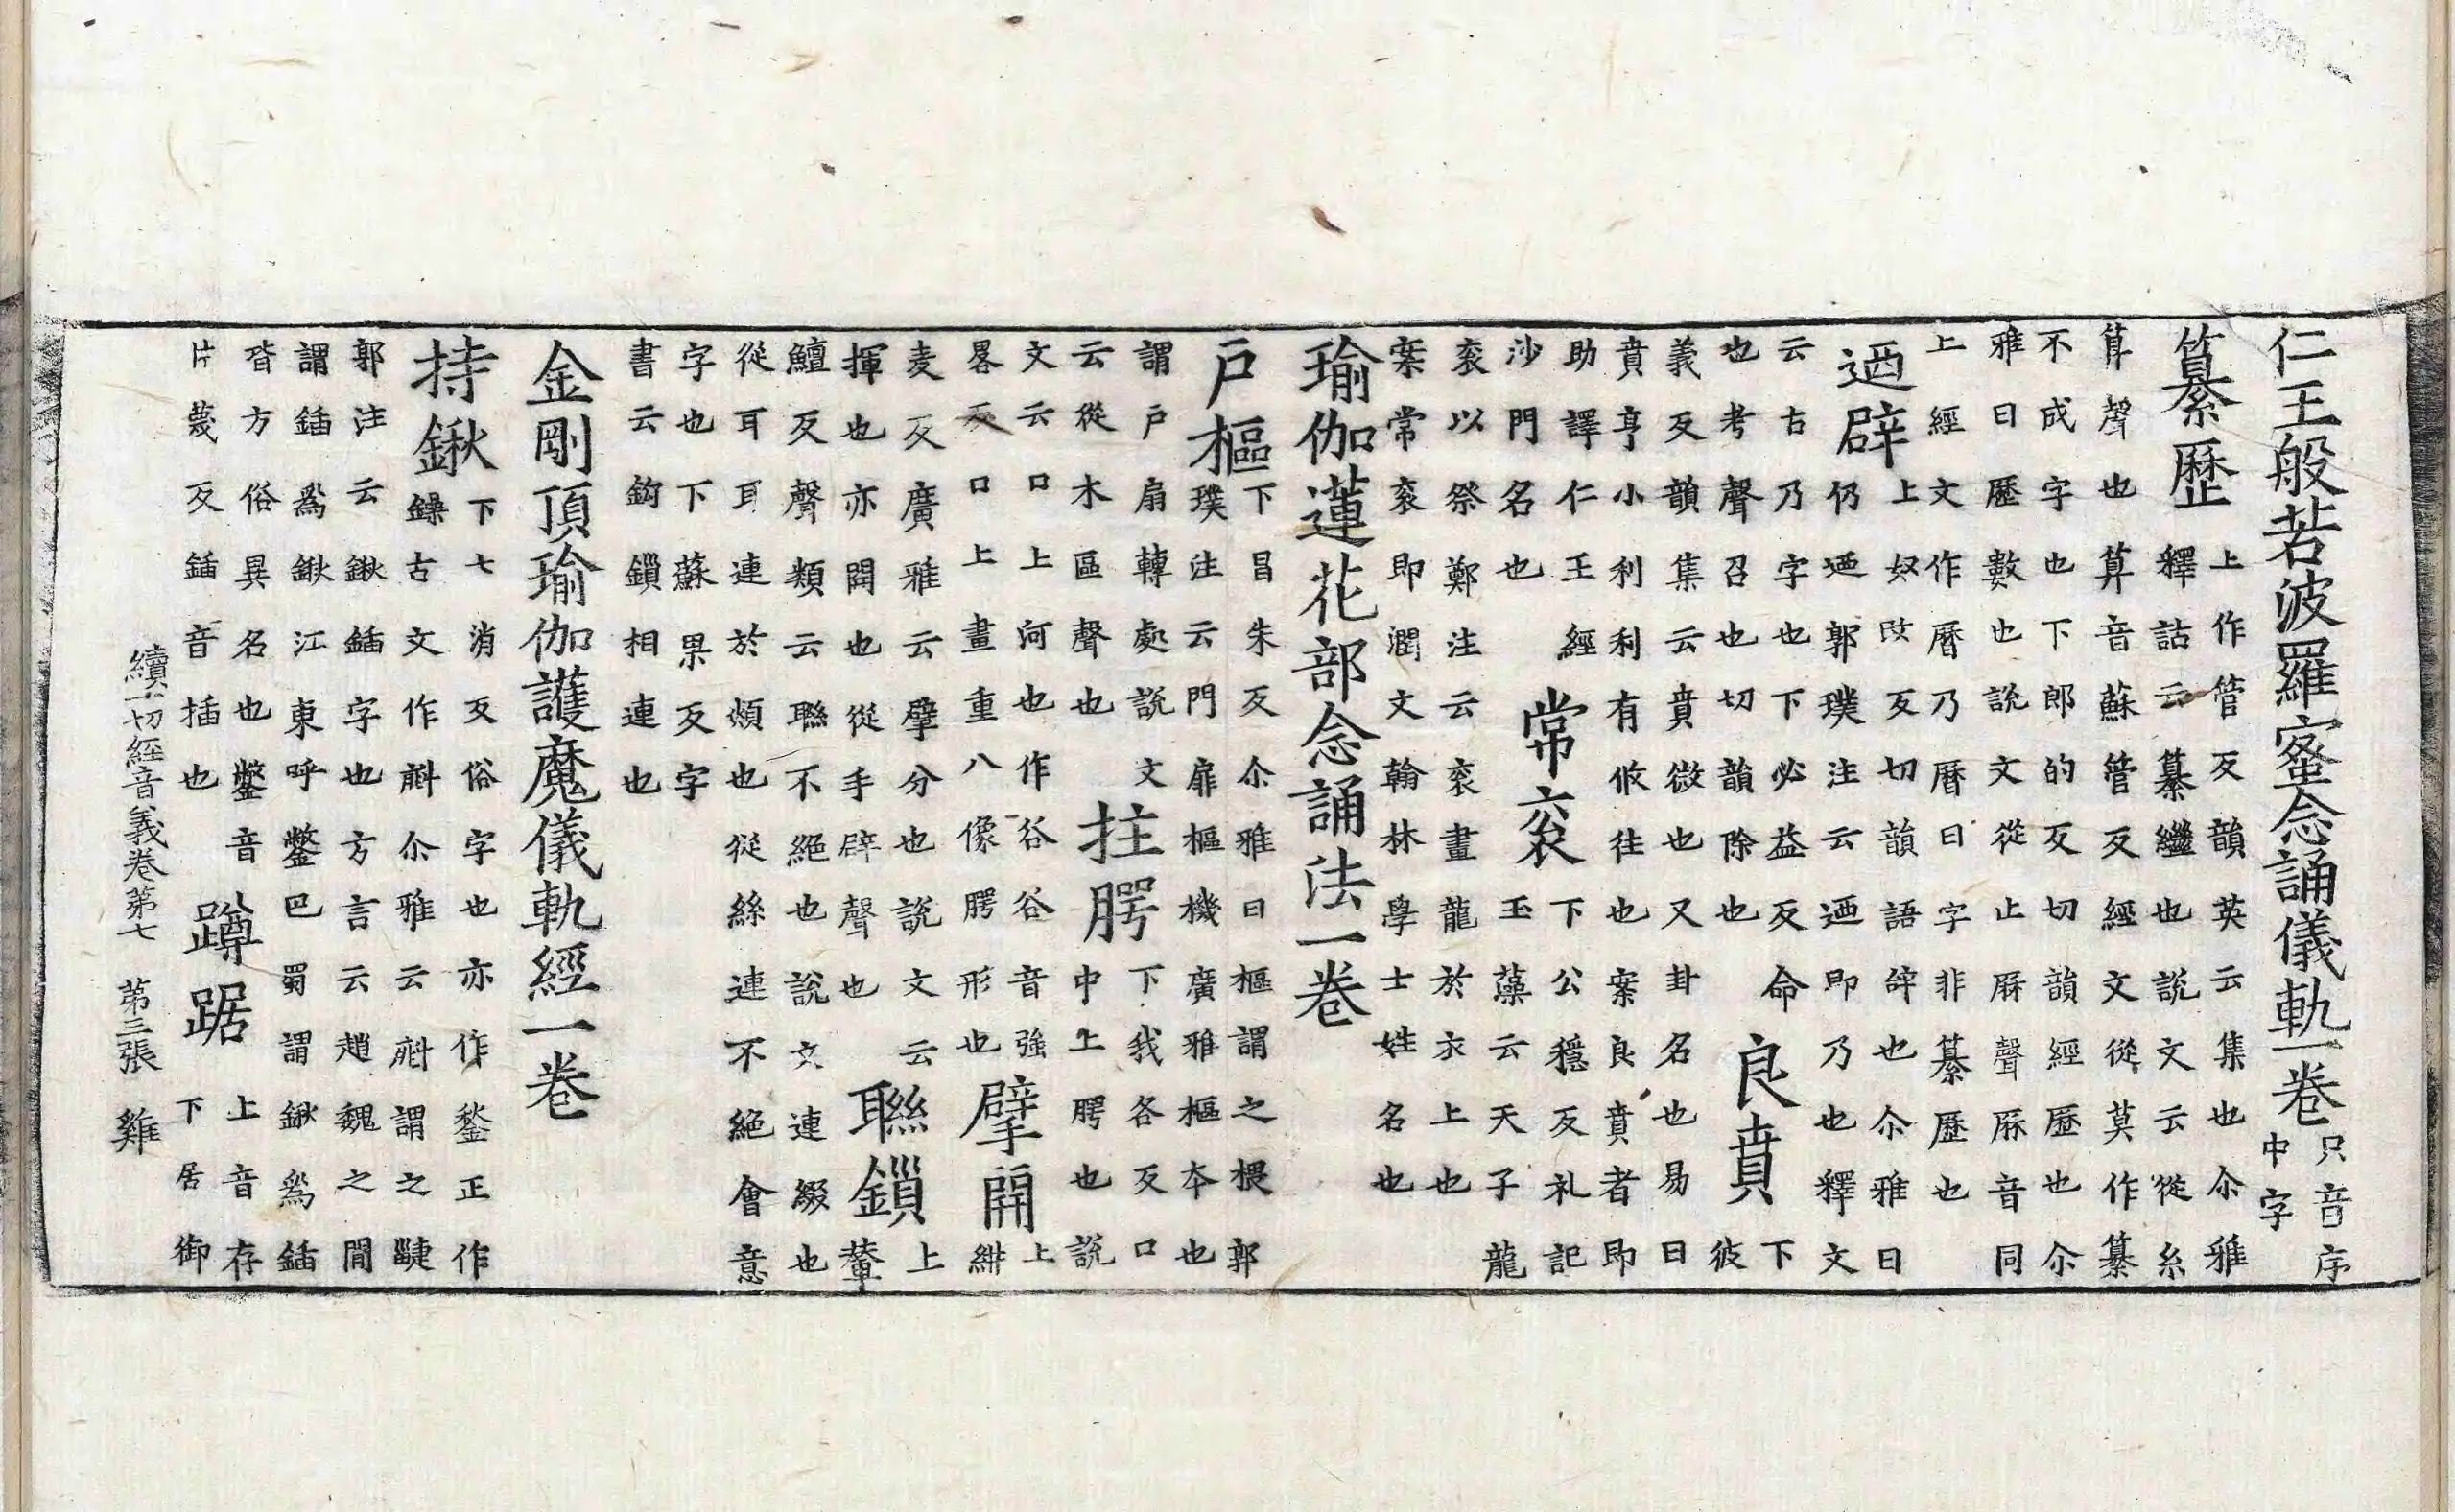 仁王般若波羅蜜念誦儀軌一卷
只音序
中字
纂歷
上作管反韻英云集也尒雅
釋詁云纂繼也說文云從糸
算聲也算音蘇管反經文從莫作纂
不成字也下郎的反切韻經歷也尒
雅曰歷數也說文從止厤聲厤音同
上經文作曆乃曆日字非纂歷也
迺辟
上奴改反切韻語辝也尒雅曰
仍迺郭璞注云迺即乃也釋文
云古乃字也下必益反命
也考聲召也切韻除也
良賁
下
彼
義反韻集云賁微也又卦名也易曰
賁亨小利利有攸往也案良賁者即
助譯仁王經
沙門名也
常袞
下公穩反礼記
玉藻云天子龍
袞以祭鄭注云袞畫龍於衣上也
案常袞即潤文翰林學士姓名也
瑜伽蓮花部念誦法一卷
戶樞
下昌朱反尒雅曰樞謂之椳郭
璞注云門扉樞機廣雅樞夲也
謂戶扇轉處說文
云從木區聲也
拄腭
下我各反口
中上腭也說
文云口上河也作谷谷音強
畧反口上畫重八像腭形也
擘開
上
絣
麦反廣雅云擘分也說文云
揮也亦開也從手辟聲也
聯鎻
上
輦
鱣反聲類云聯不絕也說文連綴也
從耳耳連於頰也從絲連不絕會意
字也下蘇果反字
書云鈎鎻相連也
金剛頂瑜伽護魔儀軌經一卷
持鍬
下七消反俗字也亦作鍫正作
鐰古文作㪺尒雅云㪺謂之疀
郭注云鍬鍤字也方言云趙魏之間
謂鍤爲鍬江東呼鐅巴蜀謂鍬爲鍤
皆方俗異名也鐅音
片蔑反鍤音插也
蹲踞
上音存
下居御
續一切經音義卷第七 第三張 雞